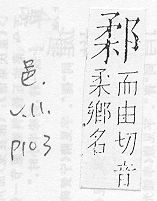 而由切音
柔鄉名
邑.
v.11.
p103